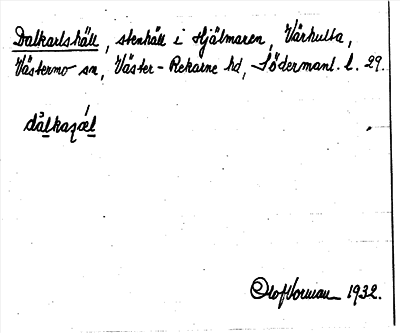 Dalkarlshäll, stenhäll i Hjälmaren, Vårhulta,
Västermo sn, Väster-Rekarne hd, Södermanl. l. 29.
Olof Vorman 1932.